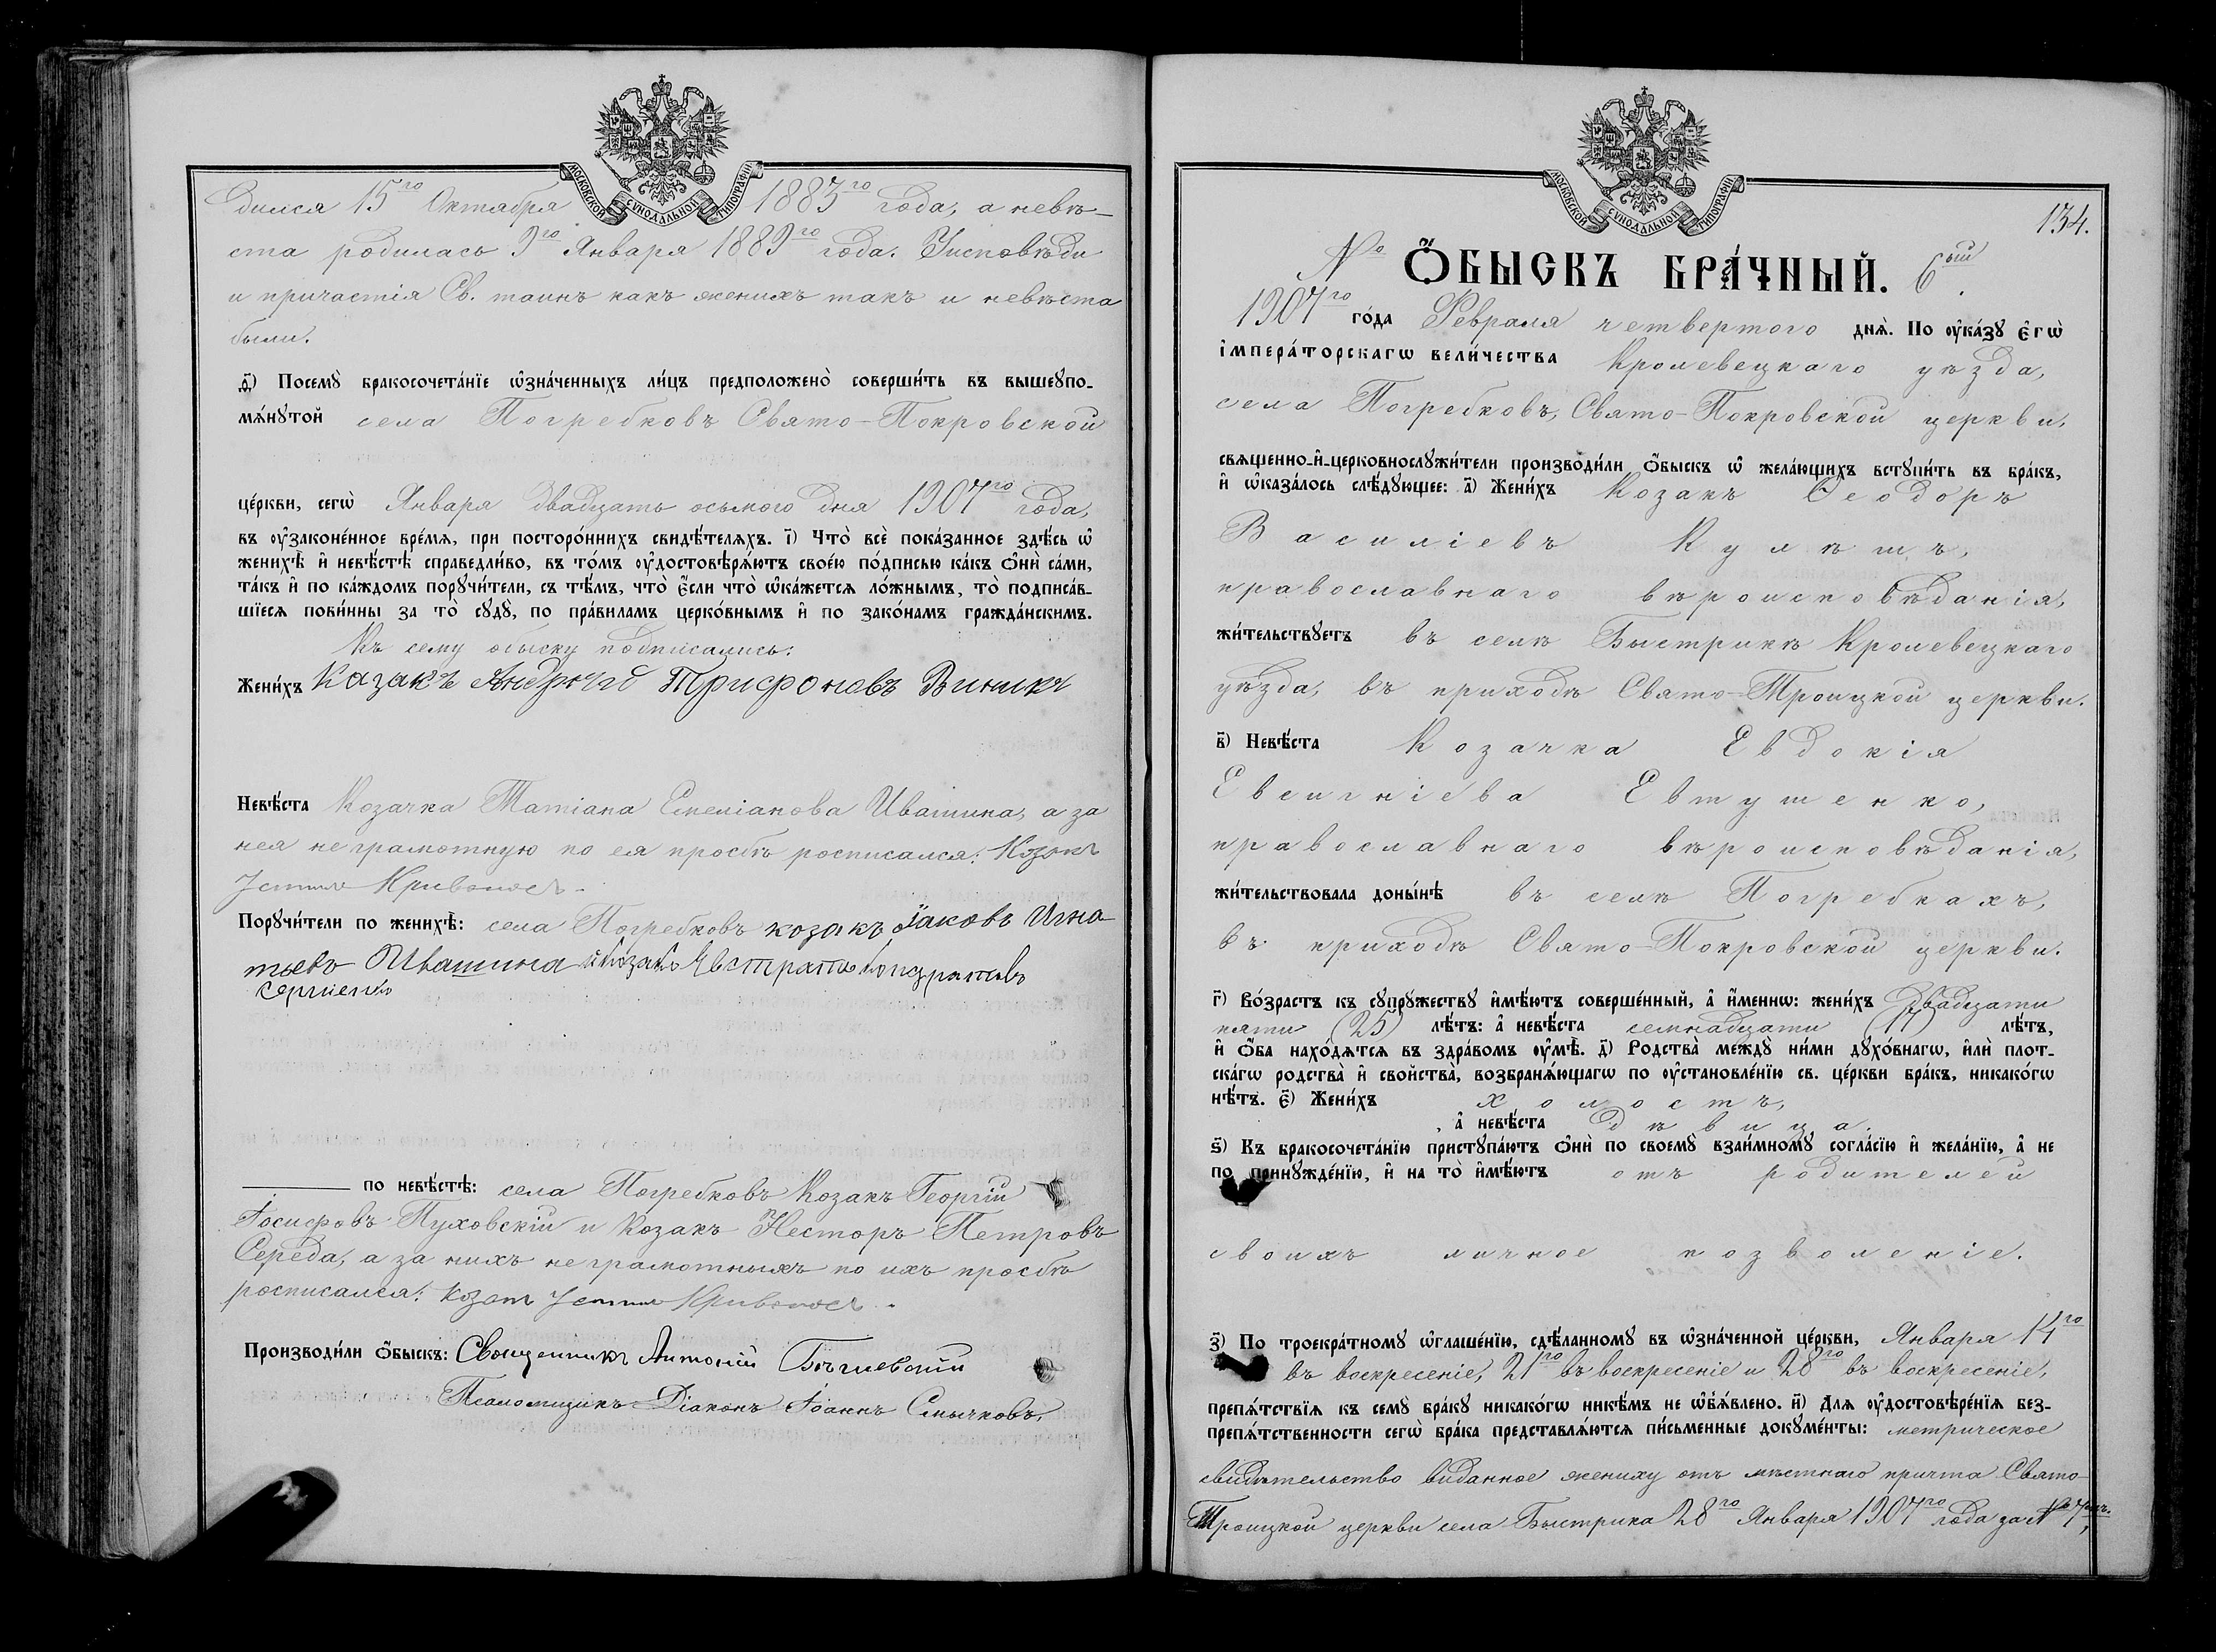 МОСКОВСКОЙ СѴНОДАЛЬНОЙ ТИПОГРАФІИ
дился 15го Октября 1883го года, а невѣ-
ста родилась 9го Января 1889го года. У исповѣди
и причастія Св. таинъ какъ женихъ такъ и невѣста
были.
д҃) Посемꙋ̀ бракосочета́нїе ѡ҆зна́ченныхъ ли́цъ предположено̀ соверши́ть въ вышеꙋпо-
мѧ́нꙋтой села Погребковъ Свято-Покровской
це́ркви, сегѡ̀ Января двадцать осьмого дня 1907го года,
въ ᲂу҆законе́нное вре́мѧ, при посторо́ннихъ свидѣ́телѧхъ. і҃) Что̀ всѐ пока́занное здѣ́сь ѡ҆
женихѣ̀ и҆ невѣ́стѣ справедли́во, въ то́мъ ᲂу҆достовѣрѧ́ютъ свое́ю по́дписью ка́къ ѻ҆нѝ са́ми,
та́къ и҆ по ка́ждомъ порꙋчи́тели, съ тѣ́мъ, что̀ є҆́сли что̀ ѡ҆ка́жетсѧ ло́жнымъ, то̀ подписа́в-
шїесѧ пови́нны за то̀ сꙋдꙋ̀, по пра́виламъ церко́внымъ и҆ по зако́намъ гражда́нскимъ.
Къ сему обыску подписались:
Жени́хъ Казакъ Андрѣй Трифоновъ Виникъ
Невѣ́ста Козачка Татіана Емеліанова Ивашина, а за
нея неграмотную по ея просьбѣ росписался: Козакъ
Устинъ Кривоносъ.
Порꙋчи́тели по женихѣ̀: села Погребковъ козакъ Іаковъ Игна
тьевъ Ивашина и козакъ Евстратъ Кондратовъ
Сергиенко
по невѣ́стѣ: села Погребковъ Козакъ Георгій
Іосифовъ Пуховскій и Козакъ Несторъ Петровъ
Середа, а за нихъ неграмотныхъ по ихъ просьбѣ
росписался: Козакъ Устинъ Кривоносъ.
Производи́ли ѻ҆́быскъ: Священникъ Антоній
Псаломщикъ-Діаконъ Іоаннъ Смычковъ.
МОСКОВСКОЙ СѴНОДАЛЬНОЙ ТИПОГРАФІИ
134.
№ Ѻ҆́БЫСКЪ БРА́ЧНЫЙ. 6ый.
1907го го́да Февраля четвертого днѧ̀. По ᲂу҆ка́зꙋ є҆гѡ̀
і҆мпера́торскагѡ вели́чества Кролевецкаго уѣзда,
села Погребковъ, Свято-Покровской церкви,
свѧщенно-и҆-церковнослꙋжи́тели производи́ли ѻ҆́быскъ ѡ҆ жела́ющихъ встꙋпи́ть въ бра́къ,
и҆ ѡ҆каза́лось слѣ́дꙋющее: а҃) Жени́хъ Козакъ Ѳеодоръ
Василіевъ Кулѣшъ,
православнаго вѣроисповѣданія,
жи́тельствꙋетъ въ селѣ Быстрикѣ Кролевецкаго
уѣзда, въ приходѣ Свято-Троицкой церкви.
в҃) Невѣ́ста Козачка Евдокія
Евсигніева Евтушенко,
православнаго вѣроисповѣданія,
жи́тельствовала доны́нѣ въ селѣ Погребкахъ,
въ приходѣ Свято-Покровской церкви.
г҃) Во́зрастъ къ сꙋпрꙋ́жествꙋ и҆мѣ́ютъ соверше́нный, а҆ и҆́менно: жени́хъ двадцати
пяти (25) лѣ́тъ: а҆ невѣ́ста семнадцати (17) лѣ́тъ,
и҆ ѻ҆́ба нахо́дѧтсѧ въ здра́вомъ ᲂу҆мѣ̀. д҃) Родства̀ междꙋ̀ ни́ми дꙋхо́внагѡ, и҆лѝ плот-
ска́гѡ родства̀ и҆ свойства̀, возбранѧ́ющагѡ по ᲂу҆становле́нїю св. це́ркви бра́къ, никако́гѡ
нѣ́тъ. є҃) Жени́хъ холостъ,
, а҆ невѣ́ста дѣвица.
ѕ҃) Къ бракосочета́нїю пристꙋпа́ютъ ѻ҆нѝ по своемꙋ̀ взаи́мномꙋ согла́сїю и҆ жела́нїю, а҆ не
по принꙋжде́нїю, и҆ на то̀ и҆мѣ́ютъ отъ родителей
своихъ личное позволеніе.
з҃) По троекра́тномꙋ ѡ҆глаше́нїю, сдѣ́ланномꙋ въ ѡ҆зна́ченной це́ркви, Января 14го
въ воскресеніе, 21го въ воскресеніе и 28го въ воскресеніе,
препѧ́тствїѧ къ семꙋ̀ бра́кꙋ никако́гѡ никѣ́мъ не ѡ҆б̾ѧ́влено. и҃) Длѧ ᲂу҆достовѣре́нїѧ без-
препѧ́тственности сегѡ̀ бра́ка представлѧ́ютсѧ пи́сьменные докꙋме́нты: метрическое
свидѣтельство виданное жениху отъ мѣстнаго причта Свято-
Троицкой церкви села Быстрика 28го Января 1907го года за № 7мъ,